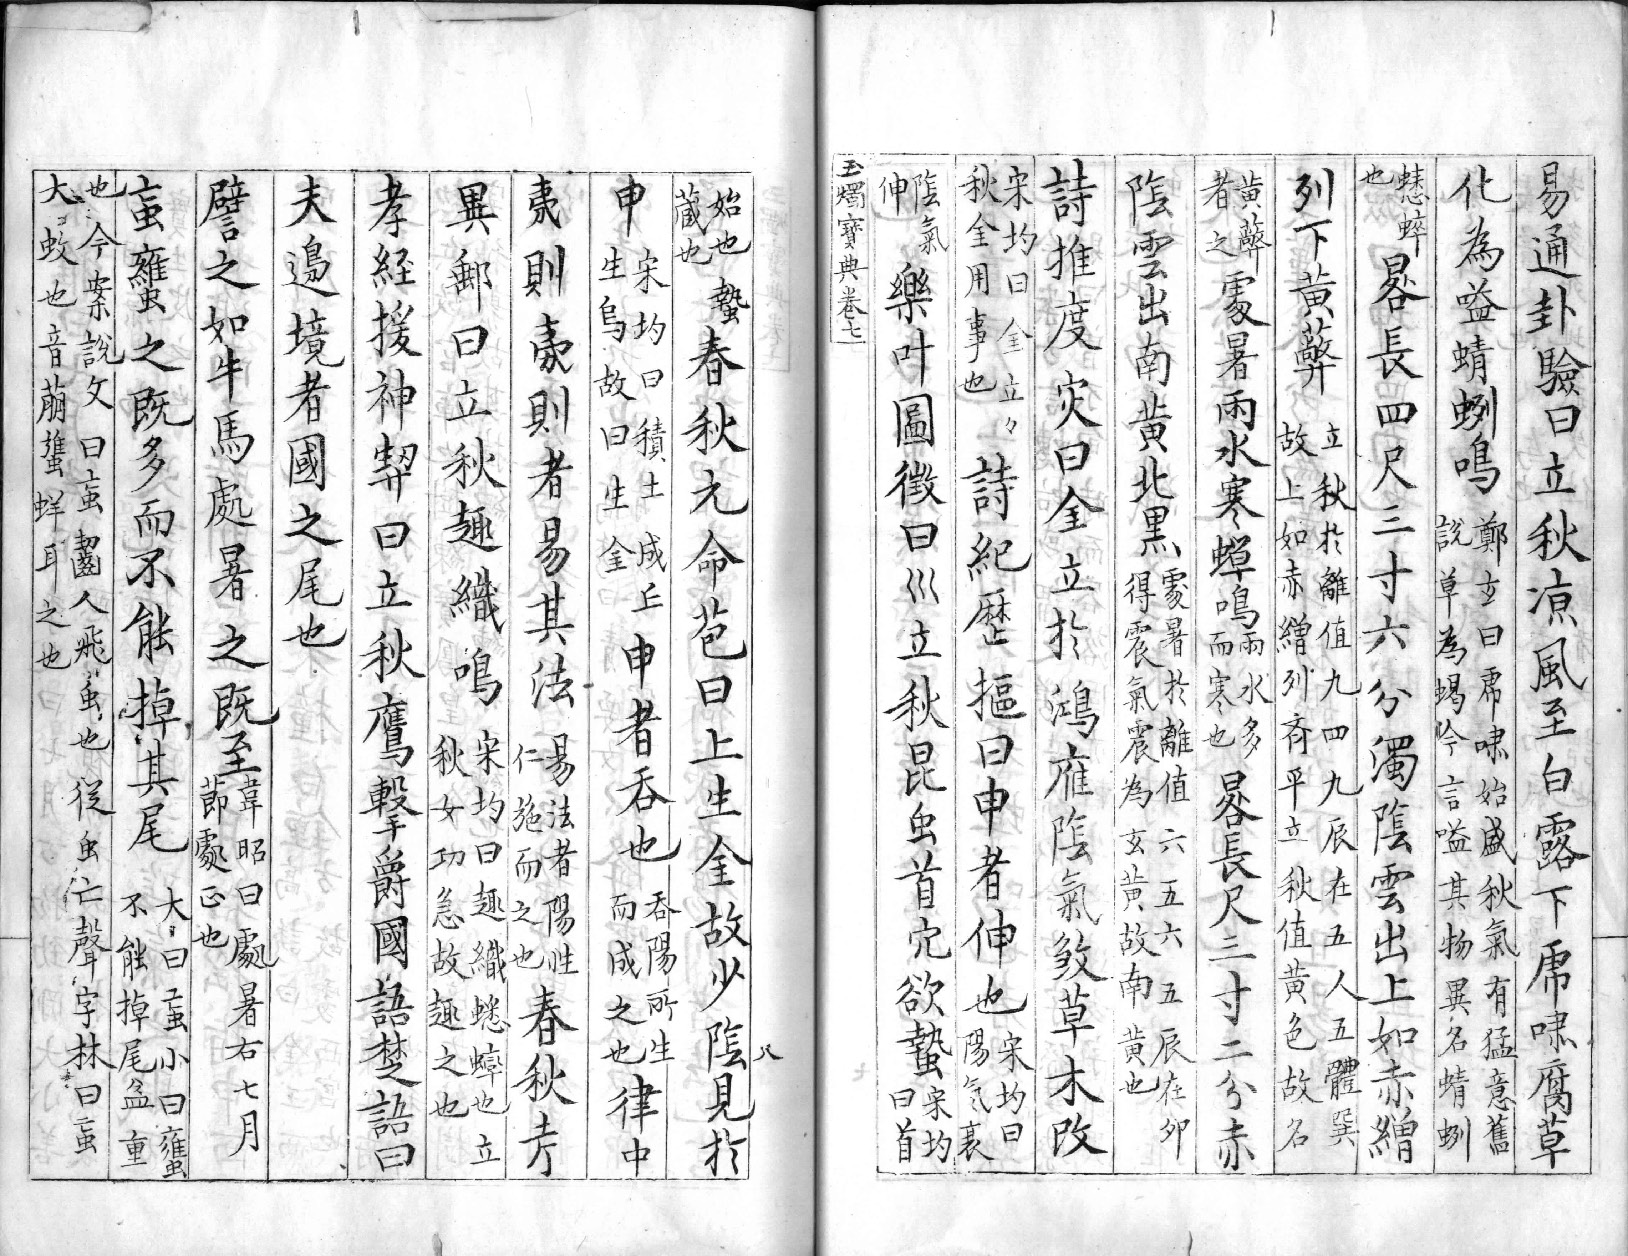 易通卦驗曰立秋凉風至白露下虎嘯腐草
化為嗌蜻蛚鳴鄭玄曰虎嘯始盛秋氣有猛意舊說草為蝎吟言嗌其物異名蜻蛚
蟋蟀也晷長四尺三寸六分濁陰雲出上如赤繒
列下黃蔽立秋於離值九四九辰在五人五體巽故上如赤繒列斉平立秋值黃色故名
黃蔽者之處暑雨水寒蟬鳴雨水多而寒也晷長尺三寸二分赤
陰雲出南黃北黑處暑於離值六五六五辰在卯得震氣震為玄黃故南黃也
詩推度灾曰金立於鴻雁陰氣煞草木改
宋均曰金立々秋金用事也詩紀歷樞曰申者伸也宋均曰陽气衰
陰氣伸樂叶圖徵曰巛立秋昆虫首穴欲蟄宋均曰首
玉燭寶典卷七
八
始也蟄藏也春秋元命苞曰上生金故少陰見於
申宋均曰積土成丘生烏故曰生金申者吞也吞陽所生而成之也律中
夷則夷則者易其法易法者陽性仁施而之也春秋考
異郵曰立秋趣織鳴宋均曰趣織蟋蟀也立秋女功急故趣之也
孝經援神契曰立秋鷹擊爵國語楚語曰
夫邊境者國之尾也
譬之如牛馬處暑之既至韋昭曰處暑右七月節處正也
䖟䗸之既多而不能掉其尾大曰䖟小曰䗸不能掉尾益重
也今案說文曰䖟齧人飛虫也從虫亡聲字林曰䖟
大蚊也音萠蜌蛘耳之也